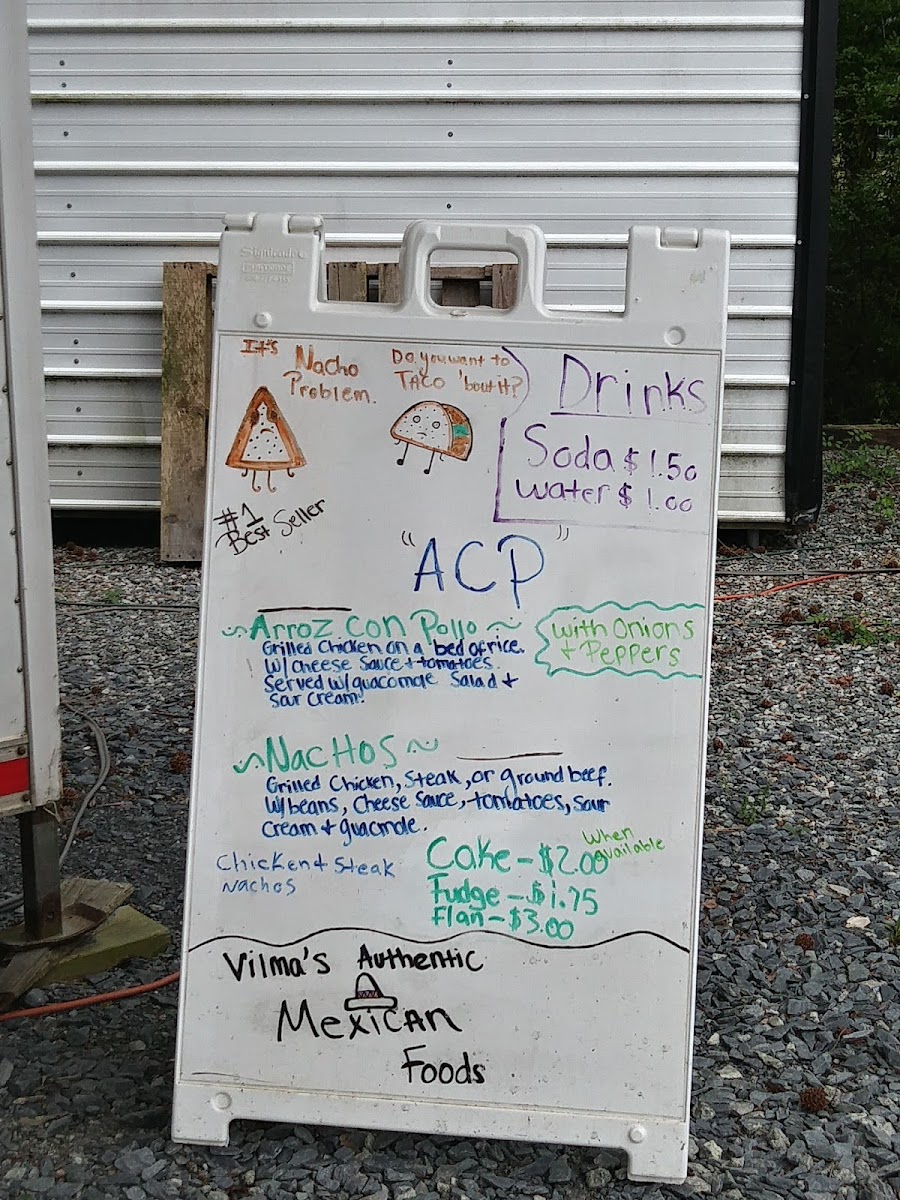 It's
Nacho
Problem.
Do you want to
TACO 'bout it?
Drinks
Soda $1.50
water $1.00
#1
Best Seller
"ACP"
~Arroz con Pollo~
Grilled Chicken on a bed of rice.
W/ cheese Sauce + tomatoes.
Served w/ guacomole Salad +
Sour Cream!
with Onions
+ Peppers
~Nachos~
Grilled Chicken, Steak, or ground beef.
W/ beans, Cheese Sauce, tomatoes, Sour
Cream + guacmole.
Chicken + Steak
Nachos
Cake - $2.00
When
available
Fudge - $1.75
Flan - $3.00
Vilma's Authentic
Mexican
Foods